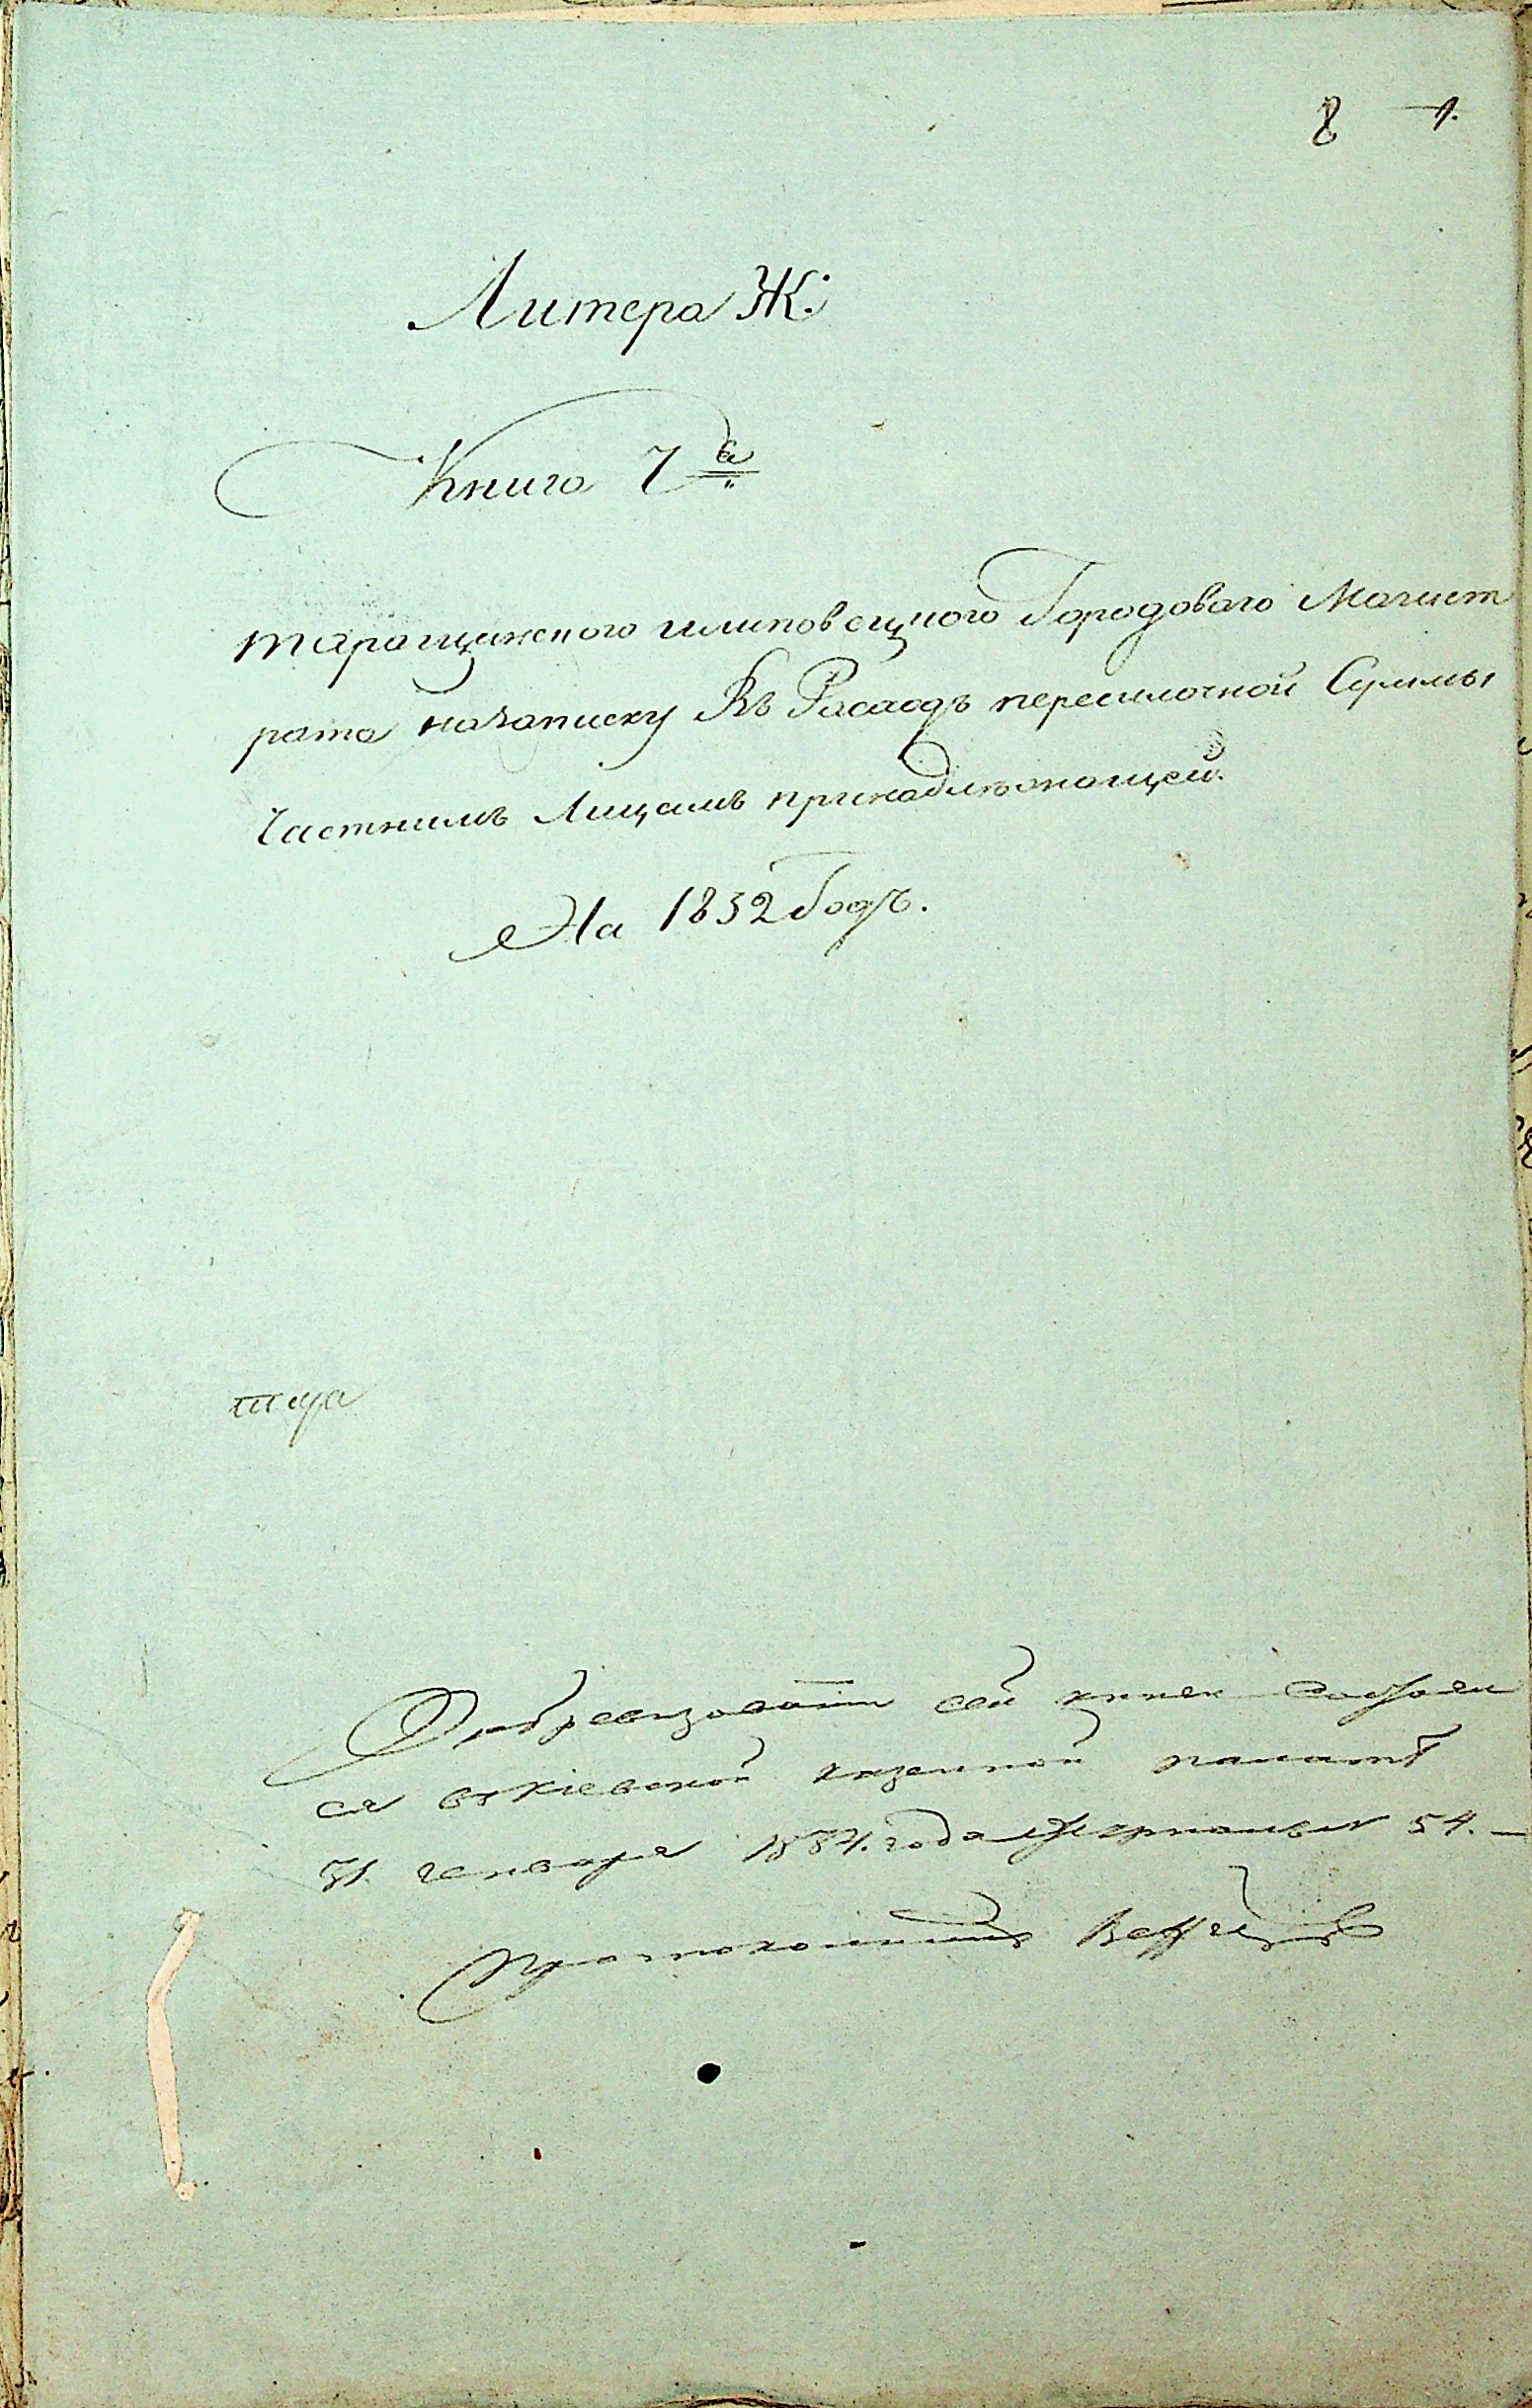 8 1.
Литера Ж:
Книга 7а
таращинского илиповецкого Городоваго Магист
рата назаписку Въ Расаодъ пересилочной Суммы
Частнимъ Лицамъ принадлѣжащей.
На 1832 Годъ.
Обревизованiи сей книги состоял
ся въ Кiевской казенной палатѣ
31. генваря 1834. года Журнальн 54.
Протоколистъ